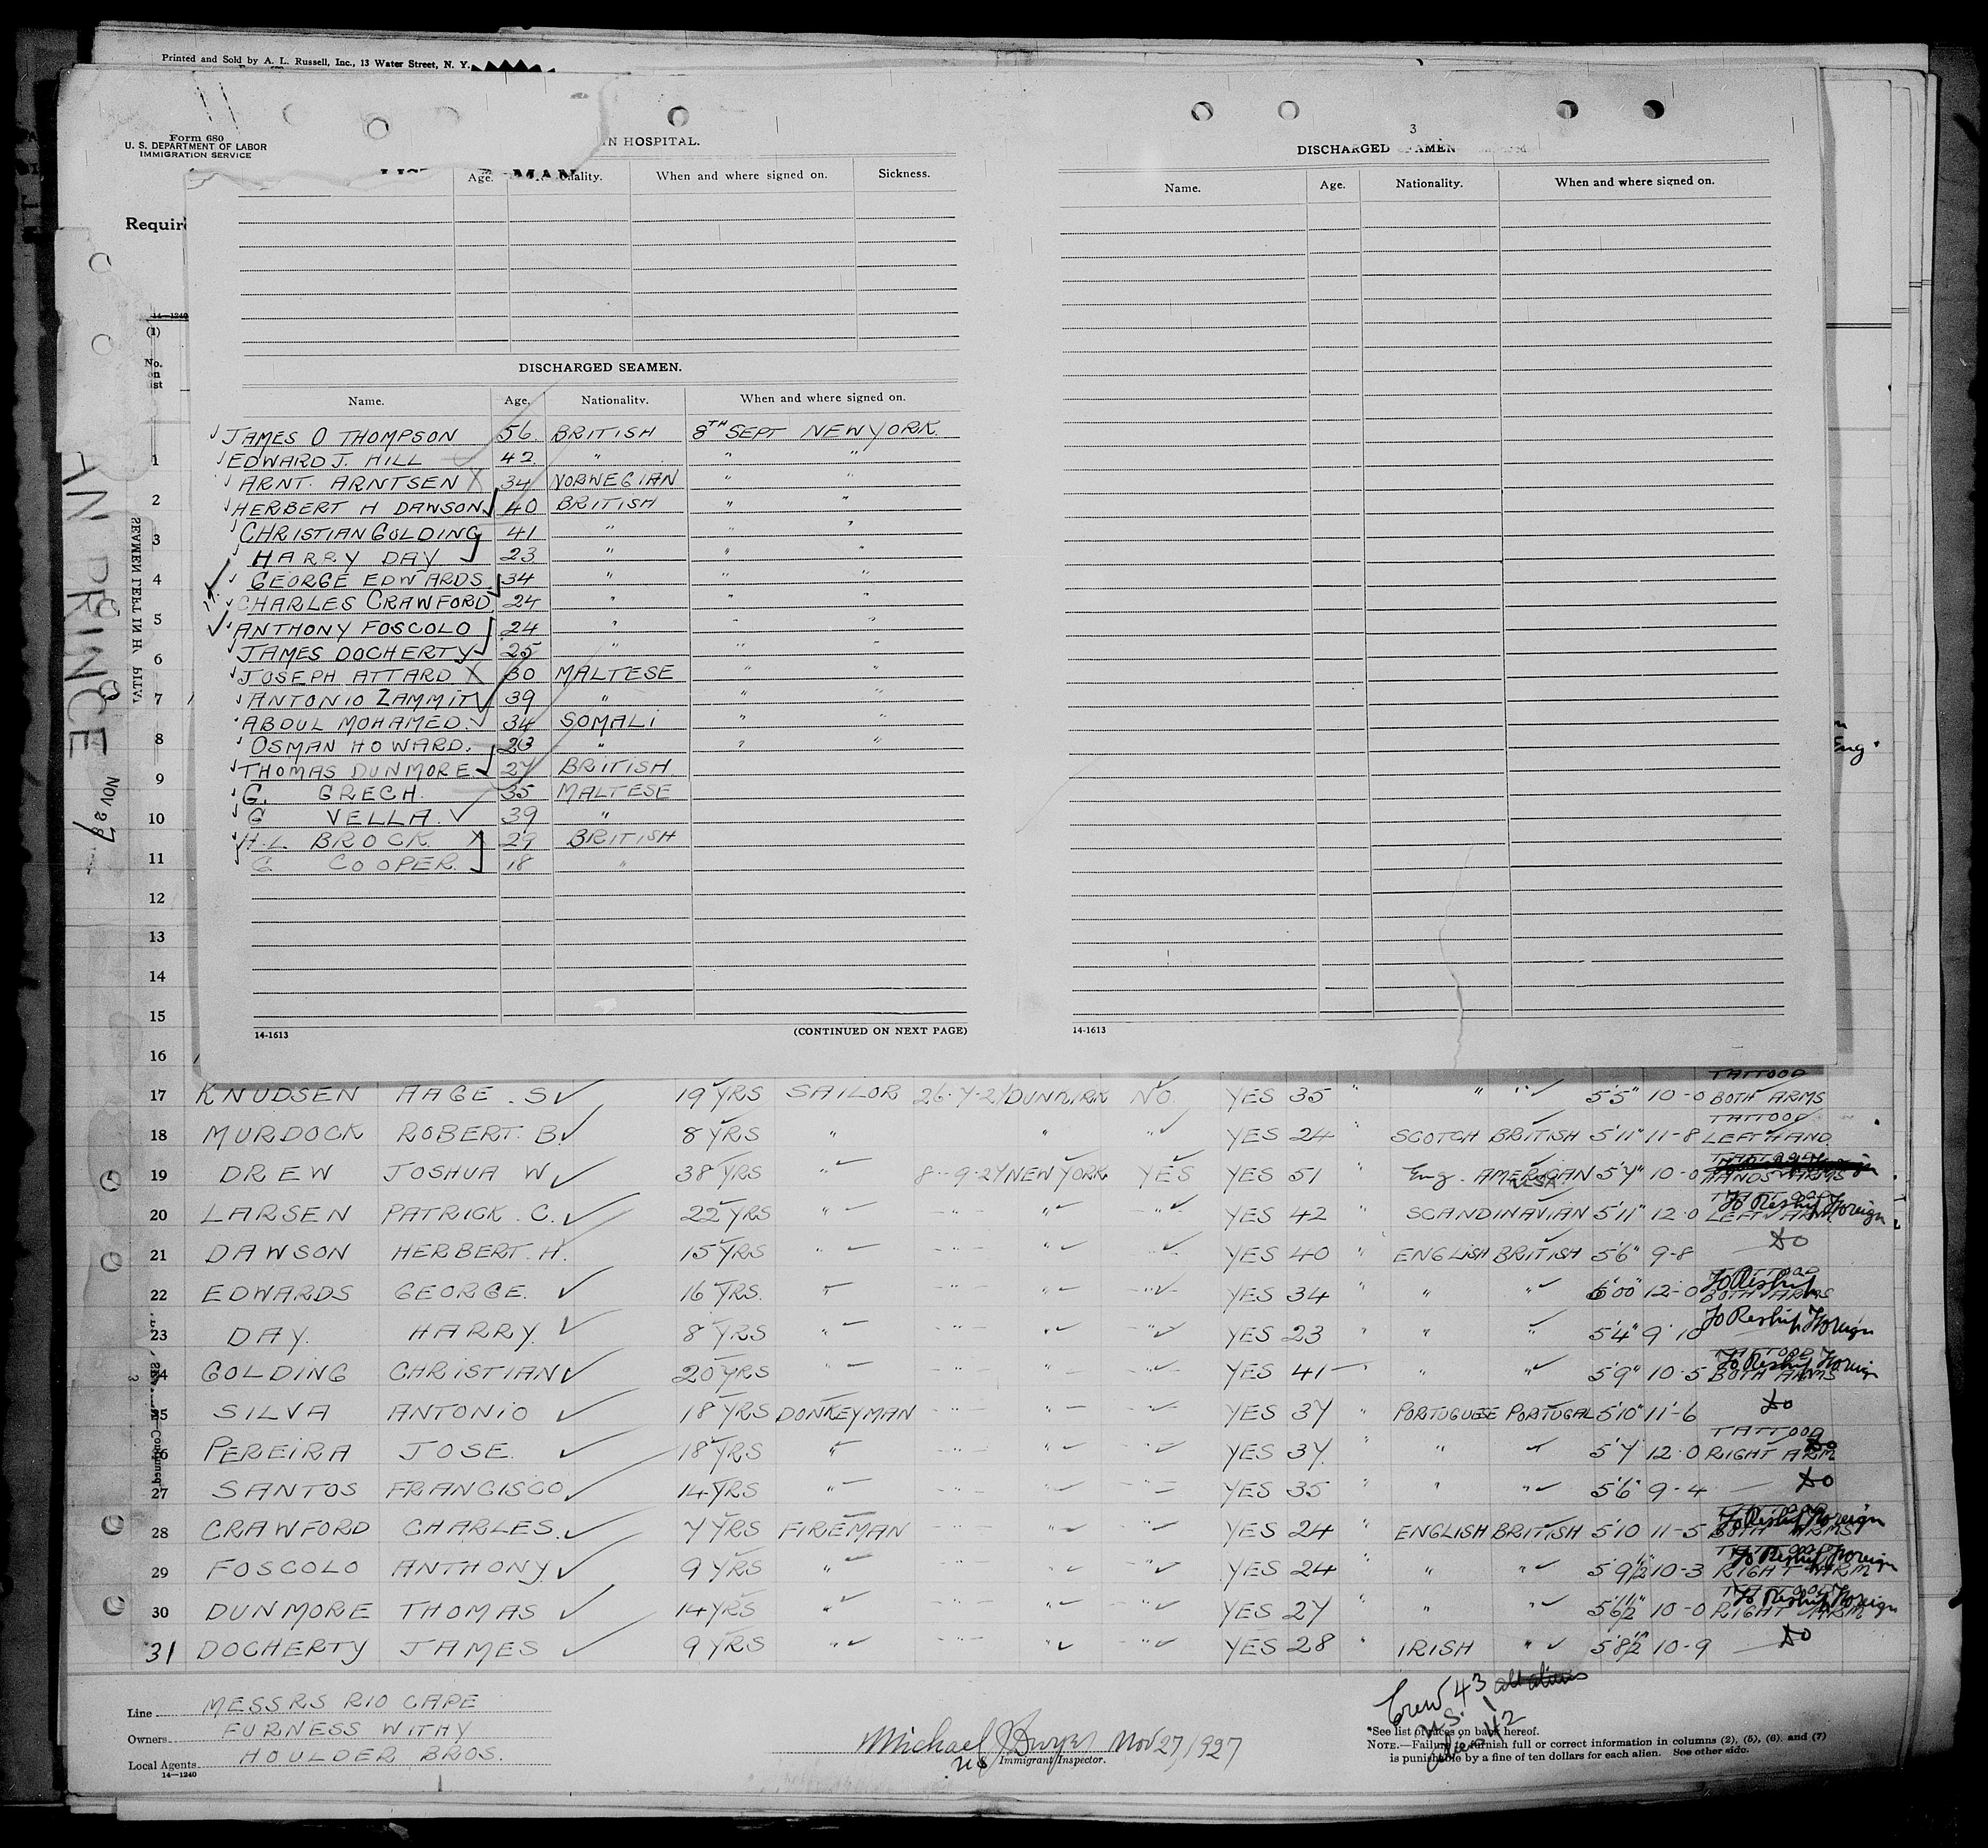 Printed and Sold by A. L. Russell, Inc., 13 Water Street, N. Y.
Form 680
U. S. DEPARTMENT OF LABOR
IMMIGRATION SERVICE
Requir
14—1240
(1)
No.
on
list
IN HOSPITAL.
Age. When and where signed on. Sickness.
DISCHARGED SEAMEN.
Name. Age. Nationality. When and where signed on.
JAMES O THOMPSON 56 BRITISH 8TH SEPT NEW YORK
EDWARD J. HILL 42 " " "
ARNT. ARNTSEN X 34 NORWEGIAN " "
HERBERT H DAWSON 40 BRITISH " "
CHRISTIAN GOLDING 41 " " "
HARRY DAY 23 " " "
GEORGE EDWARDS 34 " " "
CHARLES CRAWFORD 24 " " "
ANTHONY FOSCOLO 24 " " "
JAMES DOCHERTY 25 " " "
JOSEPH ATTARD X 30 MALTESE " "
ANTONIO ZAMMIT 39 " " "
ABDUL MOHAMED. 34 SOMALI " "
OSMAN HOWARD. " " "
THOMAS DUNMORE 27 BRITISH
G. GRECH. 35 MALTESE
G VELLA. 39 "
H.L. BROCK X 29 BRITISH
G COOPER. 18 "
14-1613 (CONTINUED ON NEXT PAGE)
3
DISCHARGED SEAMEN
Name. Age. Nationality. When and where signed on.
14-1613
AN PRINCE
SEAMEN LEFT IN
NOV 2
Eng.
1
2
3
4
5
6
7
8
9
10
11
12
13
14
15
16
17 KNUDSEN AAGE. S 19 YRS SAILOR 26.7.27 DUNKIRK NO. YES 35 " " " 5'5" 10-0 TATTOOD BOTH ARMS
18 MURDOCK ROBERT. B. 8 YRS " " " YES 24 " SCOTCH BRITISH 5'11" 11-8 TATTOOD LEFT HAND
19 DREW JOSHUA W 38 YRS " 8-9-27 NEW YORK YES YES 51 " Eng. AMERICAN USA 5'7" 10-0 HANDS ARMS
20 LARSEN PATRICK. C. 22 YRS " " " " YES 42 " SCANDINAVIAN 5'11" 12.0 LEFT ARM To Reship Foreign
21 DAWSON HERBERT. H. 15 YRS " " " " YES 40 " ENGLISH BRITISH 5'6" 9-8 Do
22 EDWARDS GEORGE. 16 YRS. " " " " YES 34 " " " 6'00 12-0 TATTOOD BOTH ARMS To Reship
23 DAY. HARRY. 8 YRS " " " " YES 23 " " " 5'4" 9.10 To Reship Foreign
24 GOLDING CHRISTIAN 20 YRS " " " YES 41 " " " 5'9" 10.5 TATTOOD BOTH ARMS To Reship Foreign
25 SILVA ANTONIO 18 YRS DONKEYMAN " " " YES 37 " PORTUGUESE PORTUGAL 5'10" 11'-6 Do
26 PEREIRA JOSE. 18 YRS " " " " YES 37. " " " 5'7 12.0 TATTOOD RIGHT ARM Do
27 SANTOS FRANCISCO 14 YRS " " " " YES 35 " " " 5'6" 9-4 Do
28 CRAWFORD CHARLES. 7 YRS FIREMAN " " " YES 24 " ENGLISH BRITISH 5'10 11-5 BOTH ARMS To Reship Foreign
29 FOSCOLO ANTHONY 9 YRS " " " " YES 24 " " " 5'9½" 10-3 RIGHT ARM To Reship Foreign
30 DUNMORE THOMAS 14 YRS " " " " YES 27 " " " 5'6½" 10-0 RIGHT ARM To Reship Foreign
31 DOCHERTY JAMES 9 YRS " " " " YES 28 " IRISH " 5'8½" 10-9 Do
Crew 43 all aliens
U.S. 1
aliens 42
Line MESSRS RIO CAPE
Owners FURNESS WITHY
Local Agents HOULDER BROS.
14—1240
Michael J Dwyer Nov 27/1927
Immigrant Inspector.
*See list of races on back hereof.
NOTE.—Failure to furnish full or correct information in columns (2), (5), (6), and (7)
is punishable by a fine of ten dollars for each alien. See other side.